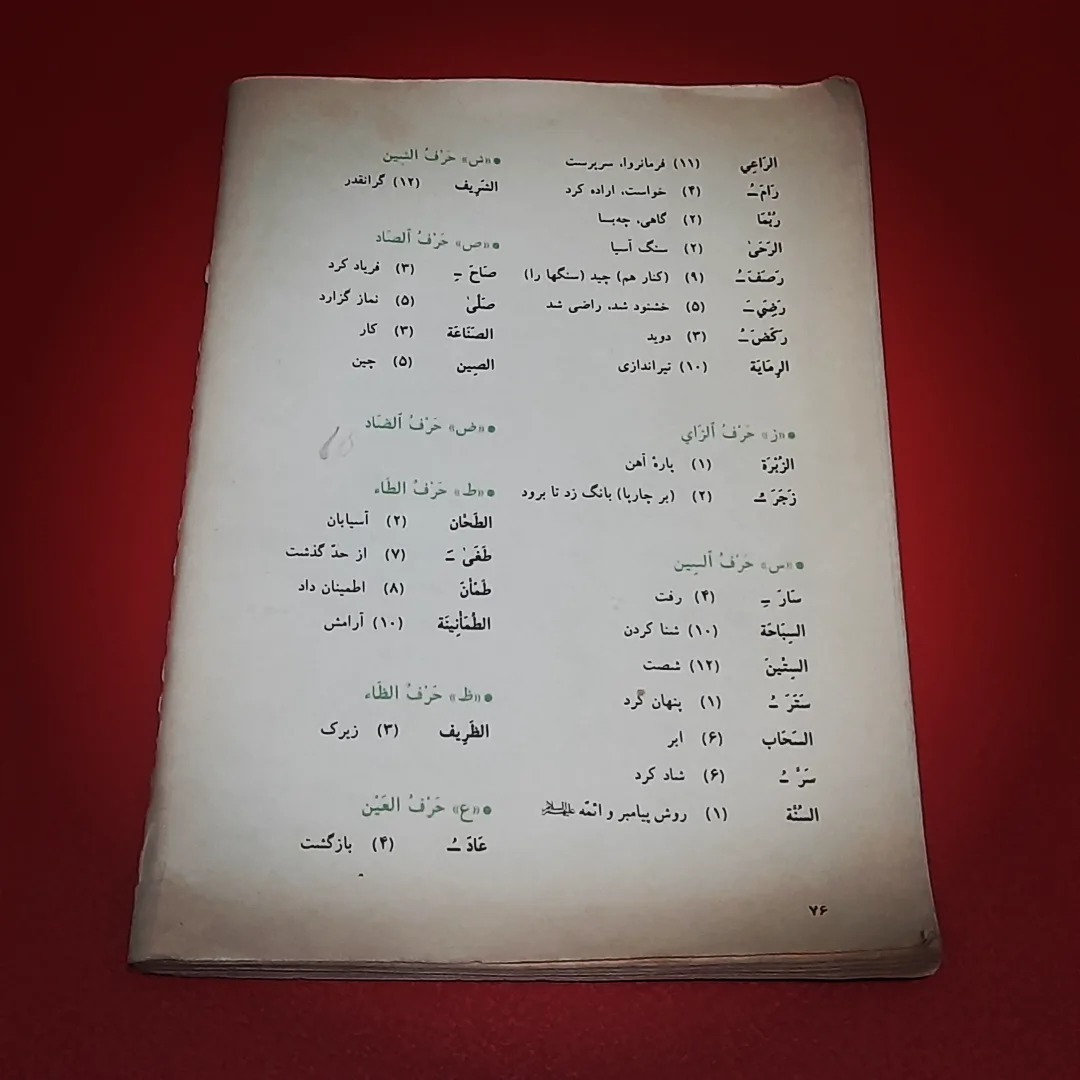 الرّاعِي (۱۱) فرمانروا، سرپرست
رَامَ ـُ (۴) خواست، اراده کرد
رُبَّمَا (۲) گاهی، چه‌بسا
الرَّحَىٰ (۲) سنگ آسیا
رَصَفَ ـُ (۹) (کنار هم) چید (سنگها را)
رَضِيَ ـَ (۵) خشنود شد، راضی شد
رَكَضَ ـُ (۳) دوید
الرِمَايَة (۱۰) تیراندازی
●«ز» حَرْفُ ٱلزَاي
الزُبْرَة (۱) پارهٔ آهن
زَجَرَ ـُ (۲) (بر چارپا) بانگ زد تا برود
●«س» حَرْفُ ٱلسِين
سَارَ ـِ (۴) رفت
السِبَاحَة (۱۰) شنا کردن
السِتّينَ (۱۲) شصت
سَتَرَ ـُ (۱) پنهان کرد
السَّحَاب (۶) ابر
سَرَّ ـُ (۶) شاد کرد
السُّنَّة (۱) روش پیامبر و ائمّه علیهم‌السلام
●«ش» حَرْفُ الشِين
الشَرِيف (۱۲) گرانقدر
●«ص» حَرْفُ ٱلصَاد
صَاحَ ـِ (۳) فریاد کرد
صَلَّىٰ (۵) نماز گزارد
الصِّنَاعَة (۳) کار
الصِين (۵) چین
●«ض» حَرْفُ ٱلضَاد
●«ط» حَرْفُ الطَاء
الطَحّان (۲) آسیابان
طَغَىٰ ـَ (۷) از حدّ گذشت
طَمْأَنَ (۸) اطمینان داد
الطُمَأنِينَة (۱۰) آرامش
●«ظ» حَرْفُ الظَاء
الظَرِيف (۳) زیرک
●«ع» حَرْفُ العَيْن
عَادَ ـُ (۴) بازگشت
۷۶